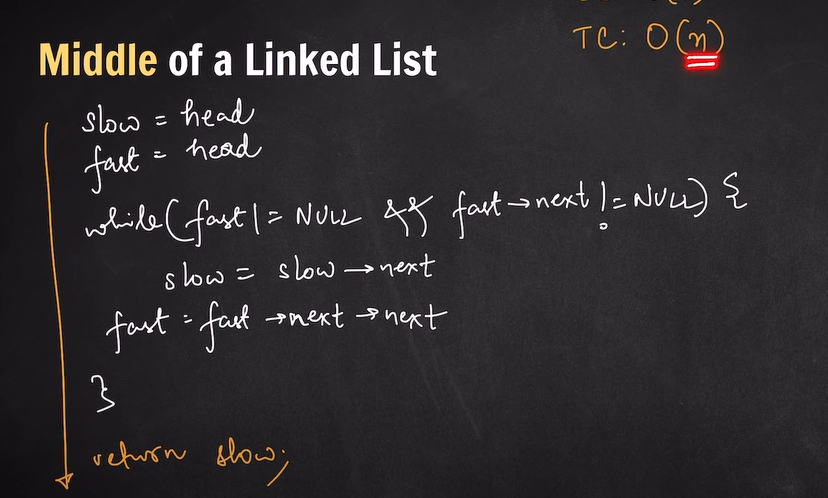 TC: O(n)
Middle of a Linked List
slow = head
fast = head
while(fast != NULL && fast→next != NULL) {
slow = slow →next
fast = fast →next →next
}
return slow;